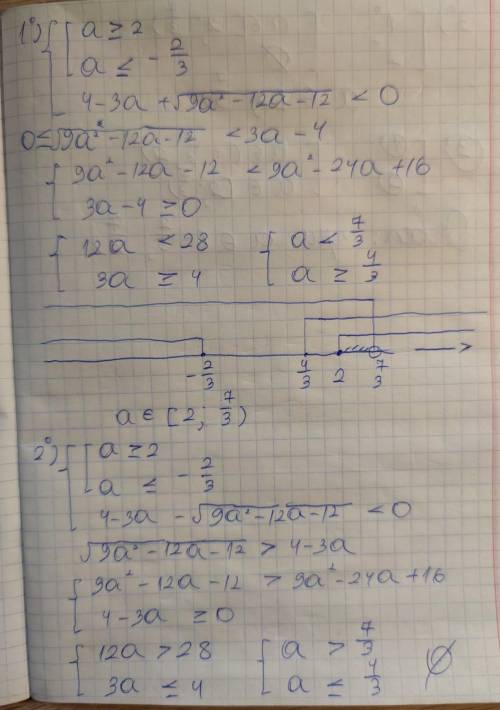 1°) { [ a ≥ 2
a ≤ -2/3
4-3a+√(9a²-12a-12) < 0
0≤√(9a²-12a-12) < 3a-4
{ 9a²-12a-12 < 9a²-24a+16
3a-4 ≥ 0
{ 12a < 28 { a < 7/3
3a ≥ 4 a ≥ 4/3
-2/3 4/3 2 7/3
a ∈ [2; 7/3)
2°) { [ a ≥ 2
a ≤ -2/3
4-3a-√(9a²-12a-12) < 0
√(9a²-12a-12) > 4-3a
{ 9a²-12a-12 > 9a²-24a+16
4-3a ≥ 0
{ 12a > 28 { a > 7/3 ∅
3a ≤ 4 a ≤ 4/3